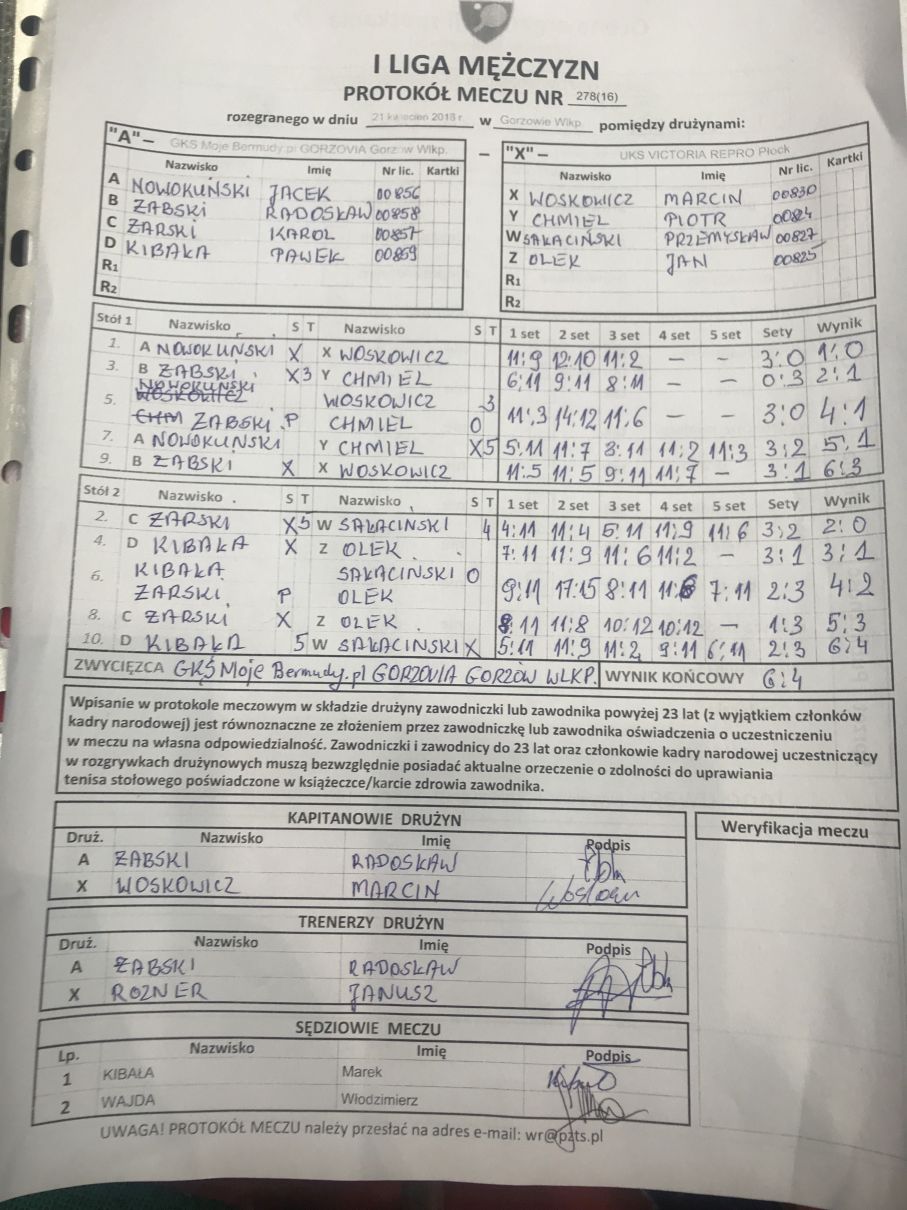 I LIGA MĘŻCZYZN
PROTOKÓŁ MECZU NR 278(16)
rozegranego w dniu 21 kwiecień 2018 r. w Gorzowie Wlkp. pomiędzy drużynami:
"A"– GKS Moje Bermudy.pl GORZOVIA Gorzów Wlkp. – "X"– UKS VICTORIA REPRO Płock
Nazwisko Imię Nr lic. Kartki Nazwisko Imię Nr lic. Kartki
A NOWOKUŃSKI JACEK 00856 X WOSKOWICZ MARCIN 00830
B ŻABSKI RADOSŁAW 00858 Y CHMIEL PIOTR 00824
C ŻARSKI KAROL 00857 W SAŁACIŃSKI PRZEMYSŁAW 00827
D KIBAŁA PAWEŁ 00859 Z OLEK JAN 00825
R1 R1
R2 R2
Stół 1 Nazwisko S T Nazwisko S T 1 set 2 set 3 set 4 set 5 set Sety Wynik
1. A NOWOKUŃSKI X X WOSKOWICZ 11:9 12:10 11:2 – – 3:0 1:0
3. B ŻABSKI X3 Y CHMIEL 6:11 9:11 8:11 – – 0:3 2:1
5. NOWOKUŃSKI WOSKOWICZ 3
ŻABSKI P CHMIEL 0 11:3 14:12 11:6 – – 3:0 4:1
7. A NOWOKUŃSKI Y CHMIEL X5 5:11 11:7 8:11 11:2 11:3 3:2 5:1
9. B ŻABSKI X X WOSKOWICZ 11:5 11:5 9:11 11:7 – 3:1 6:3
Stół 2 Nazwisko S T Nazwisko S T 1 set 2 set 3 set 4 set 5 set Sety Wynik
2. C ŻARSKI X5 W SAŁACIŃSKI 4 4:11 11:4 5:11 11:9 11:6 3:2 2:0
4. D KIBAŁA X Z OLEK 7:11 11:9 11:6 11:2 – 3:1 3:1
6. KIBAŁA SAŁACIŃSKI 0
ŻARSKI P OLEK 9:11 17:15 8:11 11:6 7:11 2:3 4:2
8. C ŻARSKI X Z OLEK 8:11 11:8 10:12 10:12 – 1:3 5:3
10. D KIBAŁA 5 W SAŁACIŃSKI X 5:11 11:9 11:2 9:11 6:11 2:3 6:4
ZWYCIĘZCA GKS Moje Bermudy.pl GORZOVIA GORZÓW WLKP. WYNIK KOŃCOWY 6:4
Wpisanie w protokole meczowym w składzie drużyny zawodniczki lub zawodnika powyżej 23 lat (z wyjątkiem członków
kadry narodowej) jest równoznaczne ze złożeniem przez zawodniczkę lub zawodnika oświadczenia o uczestniczeniu
w meczu na własna odpowiedzialność. Zawodniczki i zawodnicy do 23 lat oraz członkowie kadry narodowej uczestniczący
w rozgrywkach drużynowych muszą bezwzględnie posiadać aktualne orzeczenie o zdolności do uprawiania
tenisa stołowego poświadczone w książeczce/karcie zdrowia zawodnika.
KAPITANOWIE DRUŻYN Weryfikacja meczu
Druż. Nazwisko Imię Podpis
A ŻABSKI RADOSŁAW
X WOSKOWICZ MARCIN
TRENERZY DRUŻYN
Druż. Nazwisko Imię Podpis
A ŻABSKI RADOSŁAW
X ROZNER JANUSZ
SĘDZIOWIE MECZU
Lp. Nazwisko Imię Podpis
1 KIBAŁA Marek
2 WAJDA Włodzimierz
UWAGA! PROTOKÓŁ MECZU należy przesłać na adres e-mail: wr@pzts.pl